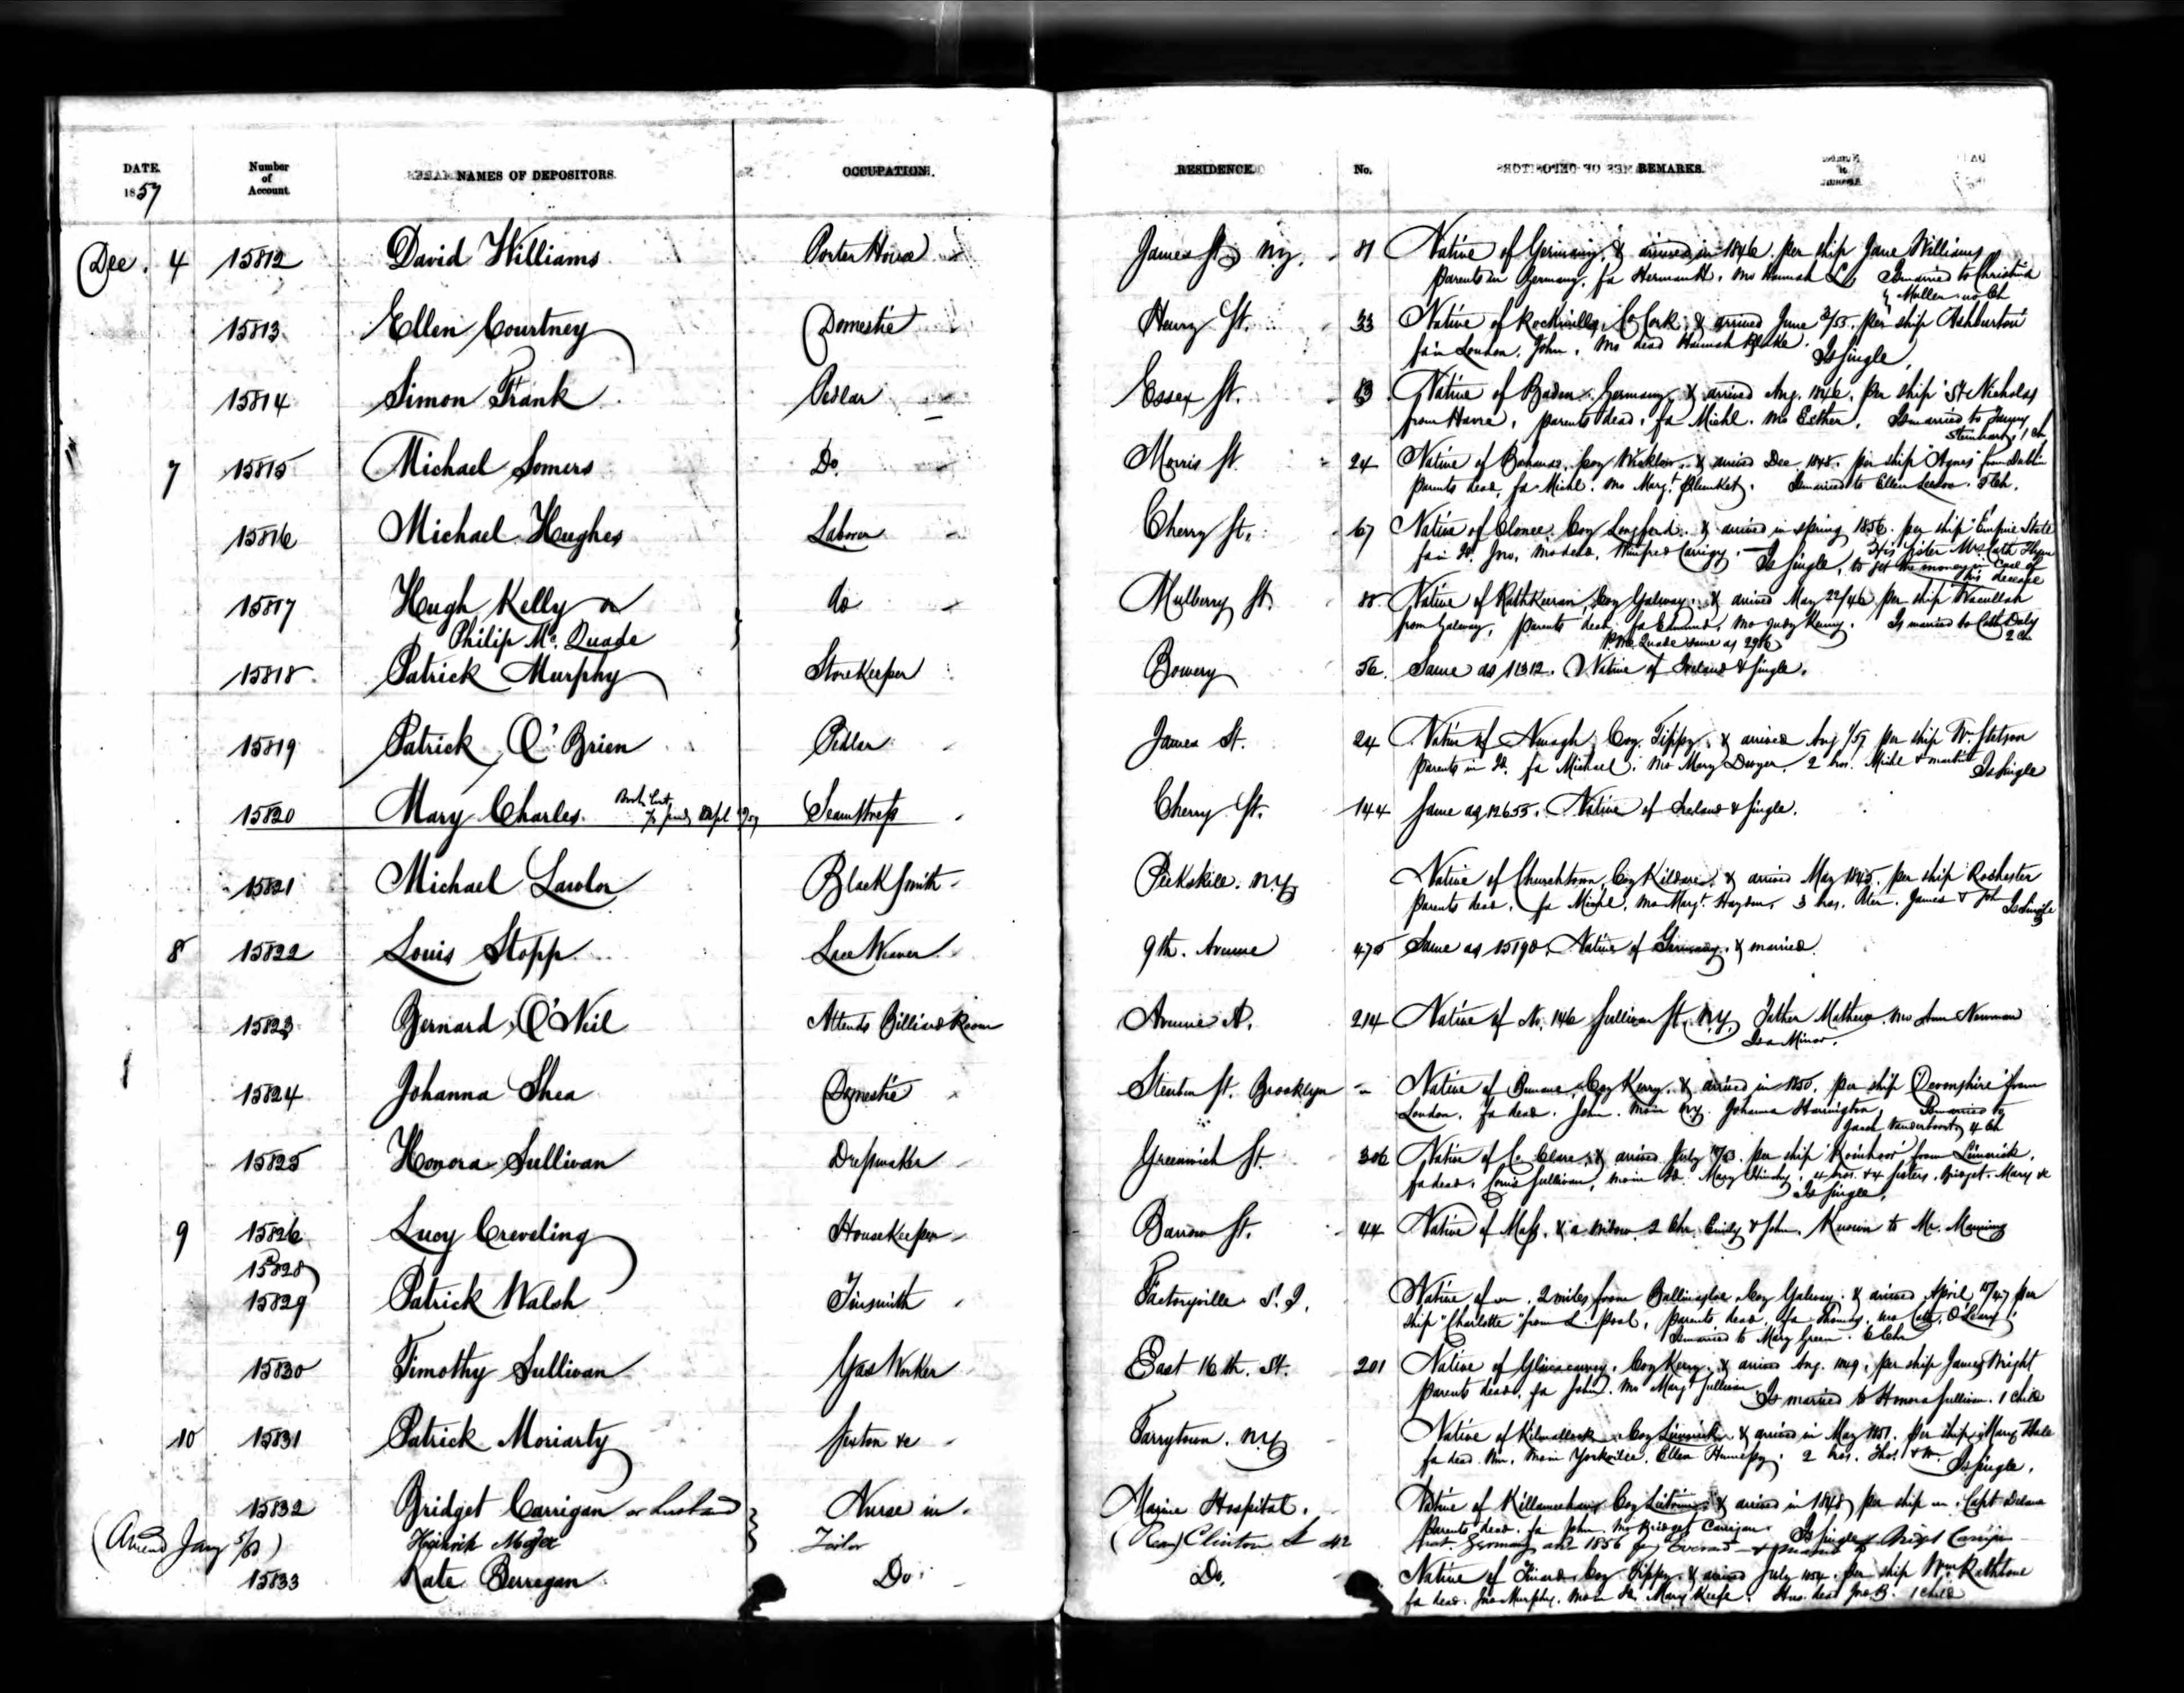 DATE. 1857 Number of Account. NAMES OF DEPOSITORS. OCCUPATION. RESIDENCE. No. REMARKS.
Dec. 4 15812 David Williams Porter House James St. N.Y. 81 Native of Germany, & arrived in 1846 per ship Jane Williams
parents in Germany, fa Herman, mo Hannah Is married to Christina
Mullen no Ch
15813 Ellen Courtney Domestic Henry St. 33 Native of Rockmills, Co Cork, & arrived June /55. per ship Ashburton
fa in London, John, mo dead Hannah Blake. Is single,
15814 Simon Frank Pedlar Essex St. 13 Native of Baden Germany, & arrived Aug. 1846, per ship "St Nicholas
from Havre, parents dead, fa Michl. mo Esther, Is married to Fanny
Steinhart, 1 Ch
7 15815 Michael Somers Do. Morris St. 24 Native of Coy Wicklow, & arrived Dec 1848. per ship "Agnes" from Dublin
parents dead, fa Michl. mo Margt. Plunket, Is married to Ellen 3 Ch.
15816 Michael Hughes Laborer Cherry St. 67 Native of Clonee Coy Longford. & arrived in spring 1856. per ship "Empire State
fa in Id. Jno, mo dead, Winifred Carrigy. Is single, His sister Mrs Cath Flynn
to get the money in case of
his decease
15817 Hugh Kelly or do Mulberry St. 88 Native of Coy Galway, & arrived May 22/46 per ship
Philip Mc. Quade from Galway, parents dead, fa Edmund, mo Judy Kenny. Is married to Cath Daly
2 Ch
P. Mc Quade same as 2986
15818 Patrick Murphy Storekeeper Bowery 56. Same as 11312. Native of Ireland & single.
15819 Patrick O'Brien Pedlar James St. 24 Native of Nenagh Coy. Tippy, & arrived Aug 1/57 per ship W. Stetson
parents in Id. fa Michael, mo Mary Dwyer, 2 bros. Michl & Martin Is single
15820 Mary Charles. Seamstress Cherry St. 144 Same as 12655. Native of Ireland & single.
15821 Michael Lawlor BlackSmith Peekskill. N.Y. Native of Churchtown, Coy Kildare, & arrived May 1845. per ship Rochester
parents dead, fa Michl, mo Margt. Haydon, 3 bros. James & Is single
8 15822 Louis Stopp Lace Weaver 9th. Avenue 475 Same as 15190. Native of Germany, & married.
15823 Bernard O'Neil Attends Billiard Room Avenue A. 214 Native of No. 146 Sullivan St. N.Y. Father Mathew. mo Ann Newman
Is a Minor.
15824 Johanna Shea Domestic Steuben St. Brooklyn Native of Coy Kerry, & arrived in 1850. per ship "Devonshire" from
London, fa dead. John. mo in N.Y. Johanna Harrington, Is married to
4 Ch
15825 Honora Sullivan Dressmaker Greenwich St. 306 Native of Co. Clare, & arrived July /53. per ship from Limerick,
fa dead, Sullivan, mo in Id. Mary 4 bros. & 4 sisters, Bridget, Mary &c
Is single.
9 15826 Lucy Creveling Housekeeper Barrow St. 44 Native of Mass. & a widow, 2 Chn. Emily & John. Known to Mr. Manning
15828
15829 Patrick Walsh Tinsmith Factoryville S.I. Native of 2 miles from Ballinasloe Coy Galway. & arrived April /47 per
ship "Charlotte" from L. pool, parents dead, fa Thomas, mo Cath. O'Leary.
Is married to Mary Green. 6 Chn
15830 Timothy Sullivan Gas Worker East 16th. St. 201 Native of Coy Kerry, & arrived Aug. 1849, per ship James Wright
parents dead, fa John. mo Margt Sullivan Is married to Honora Sullivan. 1 child
10 15831 Patrick Moriarty Sexton &c Tarrytown. N.Y. Native of Kilmallock Coy Limerick & arrived in May 1851. per ship Mary Hale
fa dead. Wm, mo in Yorkville. Ellen Hennessy, 2 bros. Thos. & Wm. Is single.
15832 Bridget Carrigan or husband Nurse in Marine Hospital. Native of Coy & arrived in 1848 per ship Capt Delano
parents dead. fa John. mo Bridget Carrigan. Is single
(Amend Jany 5/63) Heinrich Meyer Tailor (Rear) Clinton St 42 Germany 1856
15833 Kate Berregan Do. Do. Native of Coy Tippy, & arrived July 1854. per ship Wm. Rathbone
fa dead. Jno Murphy. mo in Id. Mary Keefe. Hus. dead Jno B. 1 child